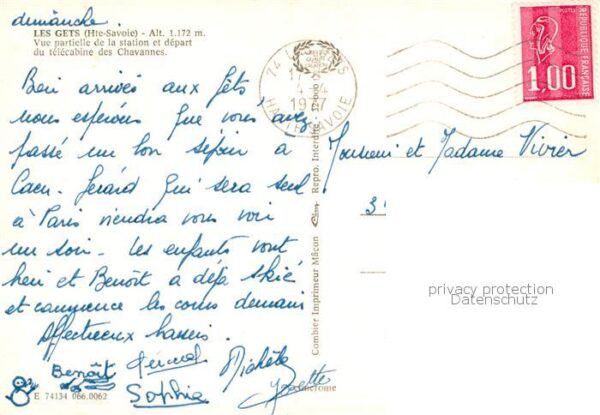 dimanche.
LES GETS (Hte-Savoie) - Alt. 1.172 m.
Vue partielle de la station et départ
du télécabine des Chavannes.
Bien arrivés aux Gets
nous espérons que vous avez
passé un bon séjour à
Caen. Gérard qui sera seul
à Paris viendra vous voir
un soir. Les enfants vont
bien et Benoît a déjà skié
et commence les cours demain
Affectueux baisers.
Benoît Gérard Michèle
Sophie Josette
E 74134 066.0062
Combier Imprimeur Mâcon Cim Repro. Interdite.
74
4-4
1977
HAUTE-SAVOIE
POSTES
REPUBLIQUE FRANÇAISE
1,00
Monsieur et Madame Vivier
3
privacy protection
Datenschutz